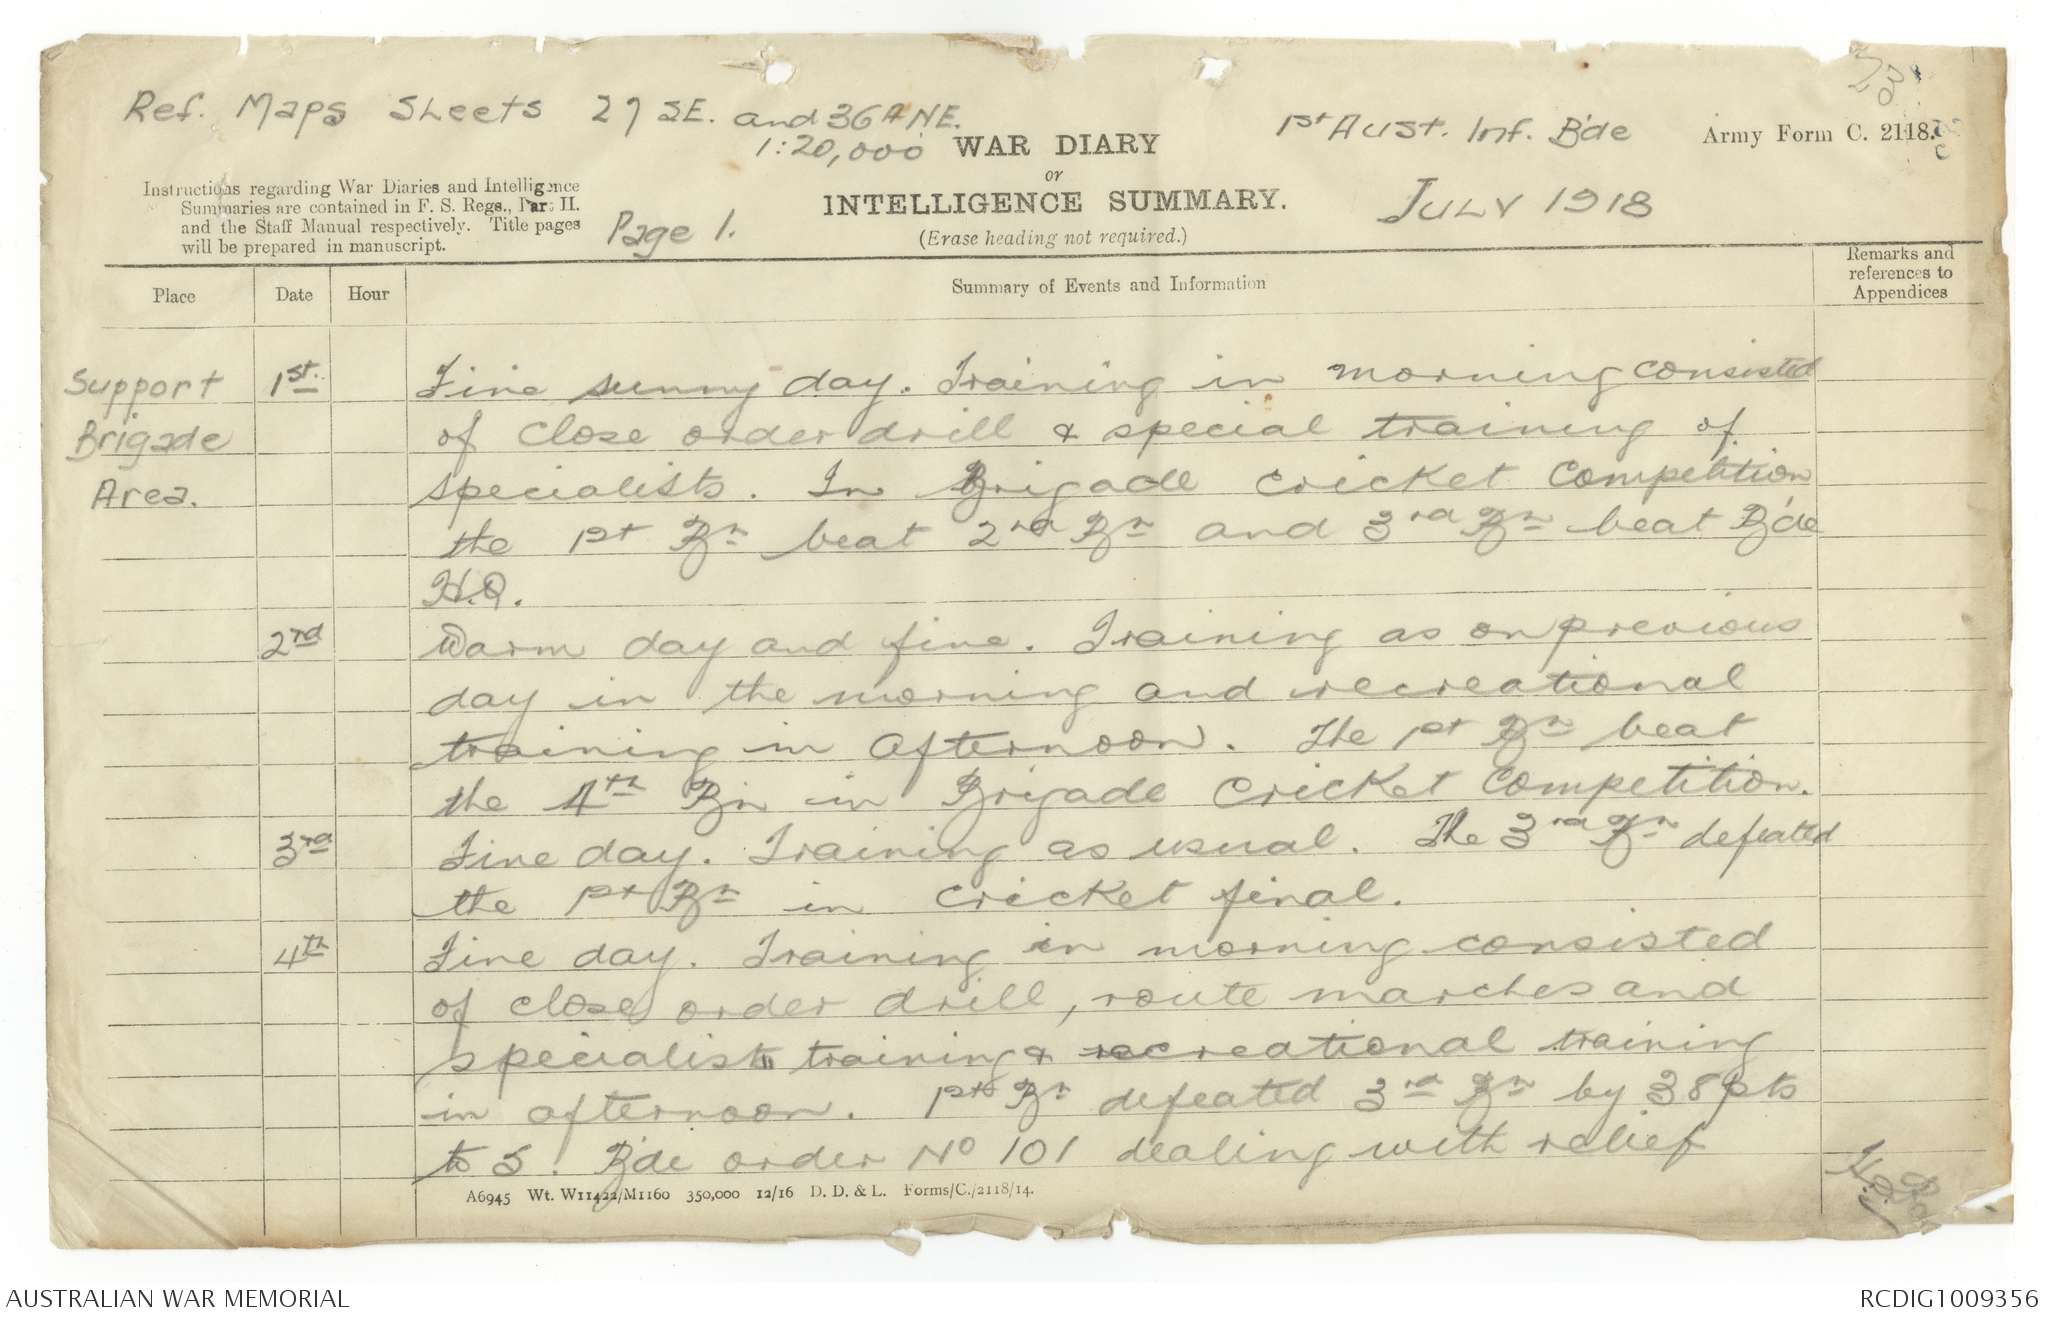 Ref. Maps Sheets 27 SE. and 36A NE.
1:20,000
1st Aust. Inf. B'de
Army Form C. 2118.
WAR DIARY
or
INTELLIGENCE SUMMARY.
(Erase heading not required.)
July 1918
Instructions regarding War Diaries and Intelligence
Summaries are contained in F. S. Regs., Part II.
and the Staff Manual respectively. Title pages
will be prepared in manuscript.
Page 1.
Place
Date
Hour
Summary of Events and Information
Remarks and
references to
Appendices
Support
Brigade
Area.
1st.
Fine sunny day. Training in morning consisted
of close order drill & special training of
specialists. In Brigade cricket competition
the 1st Bn beat 2nd Bn and 3rd Bn beat B'de
H.Q.
2nd
Warm day and fine. Training as on previous
day in the morning and recreational
training in afternoon. The 1st Bn beat
the 4th Bn in Brigade cricket competition.
3rd
Fine day. Training as usual. The 3rd Bn defeated
the 1st Bn in cricket final.
4th
Fine day. Training in morning consisted
of close order drill, route marches and
specialist training & recreational training
in afternoon. 1st Bn defeated 3rd Bn by 38 pts
to 5. B'de order No 101 dealing with relief
A6945 Wt. W11422/M1160 350,000 12/16 D. D. & L. Forms/C./2118/14.
AUSTRALIAN WAR MEMORIAL
RCDIG1009356